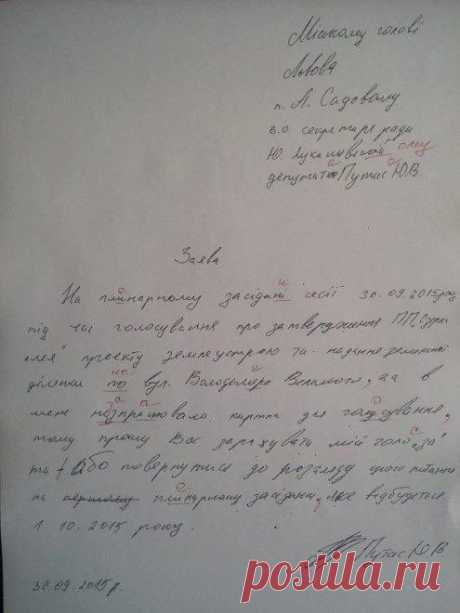 Міському голові
Львова
п. А. Садовому
в.о. секретаря ради
Ю. Лукашевській ому
депутата Путас Ю.В.
Заява
На плінарному засідані сесії 30.09.2015 року
під час голосування про затвердження ПП,
проекту землеустрою та надання земельної
ділянки по вул. Володимира Великого, в
мене не спрацювала картка для голосування,
тому прошу Вас зарахувати мій голос "за"
та + або повернутися до розгляду цього питання
на плінарному засідані, яке відбудеться
1.10.2015 року.
Путас Ю.В
30.09.2015р.
postila.ru